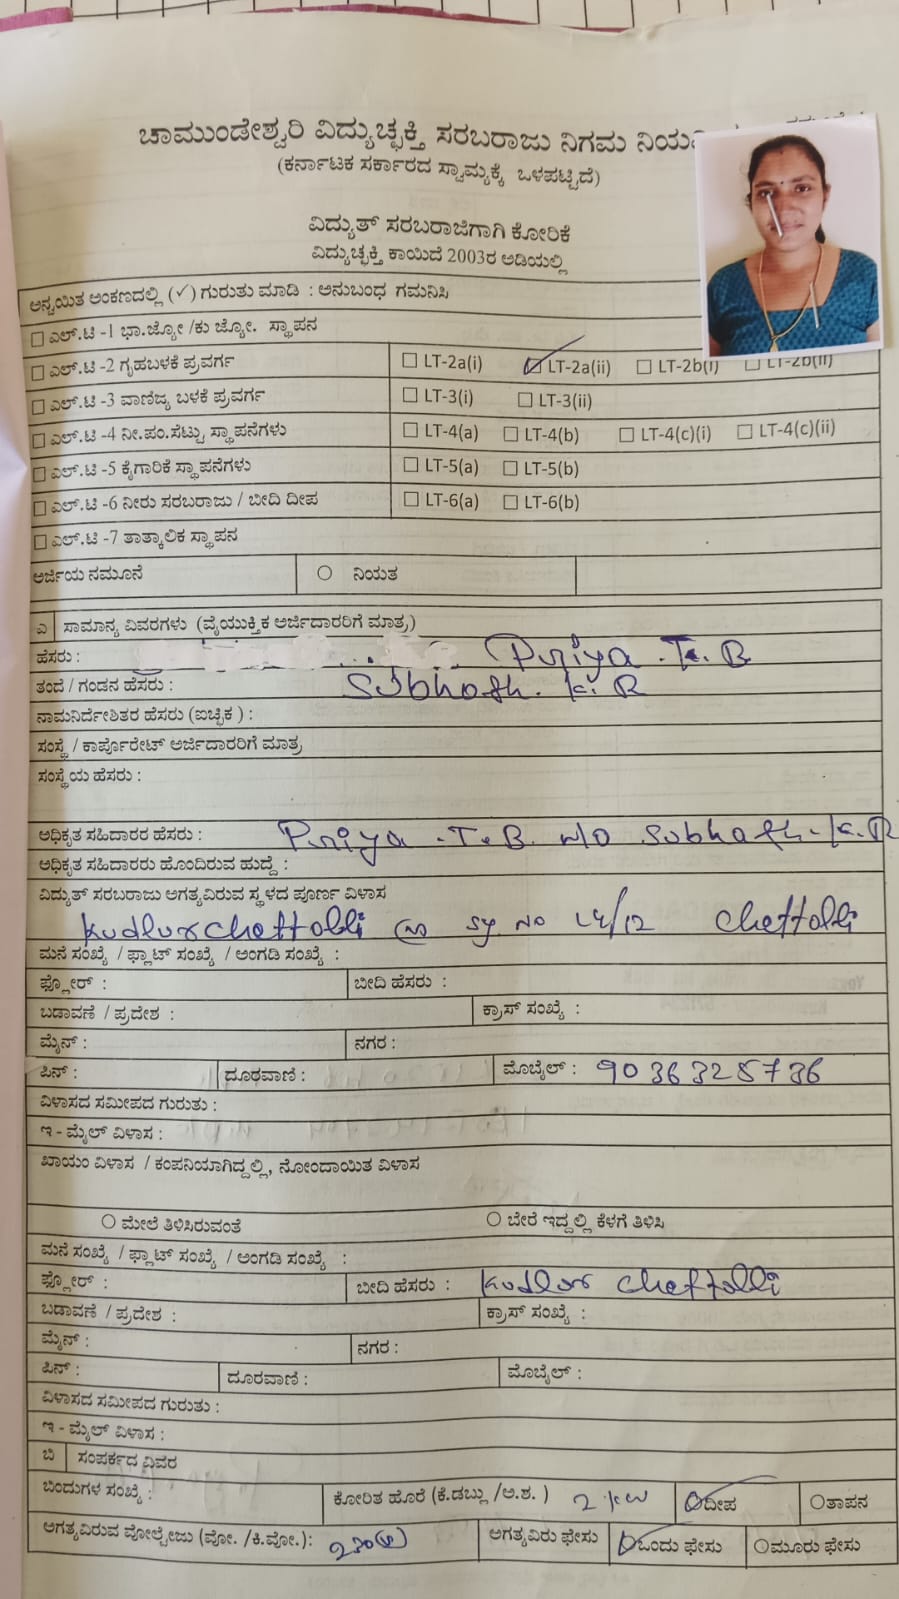 ಚಾಮುಂಡೇಶ್ವರಿ ವಿದ್ಯುಚ್ಛಕ್ತಿ ಸರಬರಾಜು ನಿಗಮ
(ಕರ್ನಾಟಕ ಸರ್ಕಾರದ ಸ್ವಾಮ್ಯಕ್ಕೆ ಒಳಪಟ್ಟಿದೆ)
ವಿದ್ಯುತ್ ಸರಬರಾಜಿಗಾಗಿ ಕೋರಿಕೆ
ವಿದ್ಯುಚ್ಛಕ್ತಿ ಕಾಯಿದೆ 2003ರ ಅಡಿಯಲ್ಲಿ
ಅನ್ವಯಿತ ಅಂಕಣದಲ್ಲಿ (✓) ಗುರುತು ಮಾಡಿ : ಅನುಬಂಧ ಗಮನಿಸಿ
☐ ಎಲ್.ಟಿ -1 ಭಾ.ಜ್ಯೋ /ಕು ಜ್ಯೋ. ಸ್ಥಾಪನ
☐ ಎಲ್.ಟಿ -2 ಗೃಹಬಳಕೆ ಪ್ರವರ್ಗ ☐ LT-2a(i) ☑ LT-2a(ii) ☐ LT-2b(i) ☐ LT-2b(ii)
☐ ಎಲ್.ಟಿ -3 ವಾಣಿಜ್ಯ ಬಳಕೆ ಪ್ರವರ್ಗ ☐ LT-3(i) ☐ LT-3(ii)
☐ ಎಲ್.ಟಿ -4 ನೀ.ಪಂ.ಸೆಟ್ಟು ಸ್ಥಾಪನೆಗಳು ☐ LT-4(a) ☐ LT-4(b) ☐ LT-4(c)(i) ☐ LT-4(c)(ii)
☐ ಎಲ್.ಟಿ -5 ಕೈಗಾರಿಕೆ ಸ್ಥಾಪನೆಗಳು ☐ LT-5(a) ☐ LT-5(b)
☐ ಎಲ್.ಟಿ -6 ನೀರು ಸರಬರಾಜು / ಬೀದಿ ದೀಪ ☐ LT-6(a) ☐ LT-6(b)
☐ ಎಲ್.ಟಿ -7 ತಾತ್ಕಾಲಿಕ ಸ್ಥಾಪನ
ಅರ್ಜಿಯ ನಮೂನೆ ○ ನಿಯತ
ಎ ಸಾಮಾನ್ಯ ವಿವರಗಳು (ವೈಯುಕ್ತಿಕ ಅರ್ಜಿದಾರರಿಗೆ ಮಾತ್ರ)
ಹೆಸರು : Priya . T. B
ತಂದೆ / ಗಂಡನ ಹೆಸರು : Subhash. K. R
ನಾಮನಿರ್ದೇಶಿತರ ಹೆಸರು (ಐಚ್ಛಿಕ) :
ಸಂಸ್ಥೆ / ಕಾರ್ಪೊರೇಟ್ ಅರ್ಜಿದಾರರಿಗೆ ಮಾತ್ರ
ಸಂಸ್ಥೆಯ ಹೆಸರು :
ಅಧಿಕೃತ ಸಹಿದಾರರ ಹೆಸರು : Priya .T.B. w/o Subhash. K. R
ಅಧಿಕೃತ ಸಹಿದಾರರು ಹೊಂದಿರುವ ಹುದ್ದೆ :
ವಿದ್ಯುತ್ ಸರಬರಾಜು ಅಗತ್ಯವಿರುವ ಸ್ಥಳದ ಪೂರ್ಣ ವಿಳಾಸ
Kudlurchettalli Sy. No 24/12 Chettalli
ಮನೆ ಸಂಖ್ಯೆ / ಫ್ಲಾಟ್ ಸಂಖ್ಯೆ / ಅಂಗಡಿ ಸಂಖ್ಯೆ :
ಫ್ಲೋರ್ : ಬೀದಿ ಹೆಸರು :
ಬಡಾವಣೆ / ಪ್ರದೇಶ : ಕ್ರಾಸ್ ಸಂಖ್ಯೆ :
ಮೈನ್ : ನಗರ :
ಪಿನ್ : ದೂರವಾಣಿ : ಮೊಬೈಲ್ : 9036325736
ವಿಳಾಸದ ಸಮೀಪದ ಗುರುತು :
ಇ - ಮೈಲ್ ವಿಳಾಸ :
ಖಾಯಂ ವಿಳಾಸ / ಕಂಪನಿಯಾಗಿದ್ದಲ್ಲಿ, ನೋಂದಾಯಿತ ವಿಳಾಸ
○ ಮೇಲೆ ತಿಳಿಸಿರುವಂತೆ ○ ಬೇರೆ ಇದ್ದಲ್ಲಿ ಕೆಳಗೆ ತಿಳಿಸಿ
ಮನೆ ಸಂಖ್ಯೆ / ಫ್ಲಾಟ್ ಸಂಖ್ಯೆ / ಅಂಗಡಿ ಸಂಖ್ಯೆ :
ಫ್ಲೋರ್ : ಬೀದಿ ಹೆಸರು : Kudlur Chettalli
ಬಡಾವಣೆ / ಪ್ರದೇಶ : ಕ್ರಾಸ್ ಸಂಖ್ಯೆ :
ಮೈನ್ : ನಗರ :
ಪಿನ್ : ದೂರವಾಣಿ : ಮೊಬೈಲ್ :
ವಿಳಾಸದ ಸಮೀಪದ ಗುರುತು :
ಇ - ಮೈಲ್ ವಿಳಾಸ :
ಬಿ ಸಂಪರ್ಕದ ವಿವರ
ಬಿಂದುಗಳ ಸಂಖ್ಯೆ : ಕೋರಿತ ಹೊರೆ (ಕೆ.ಡಬ್ಲು /ಅ.ಶ. ) 2 kw ○ದೀಪ ○ತಾಪನ
ಅಗತ್ಯವಿರುವ ವೋಲ್ಟೇಜು (ವೋ. /ಕಿ.ವೋ.): ಅಗತ್ಯವಿರು ಫೇಸು ○ಒಂದು ಫೇಸು ○ಮೂರು ಫೇಸು